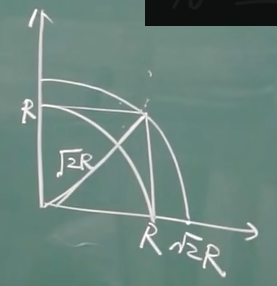 R
√2R
R
√2R